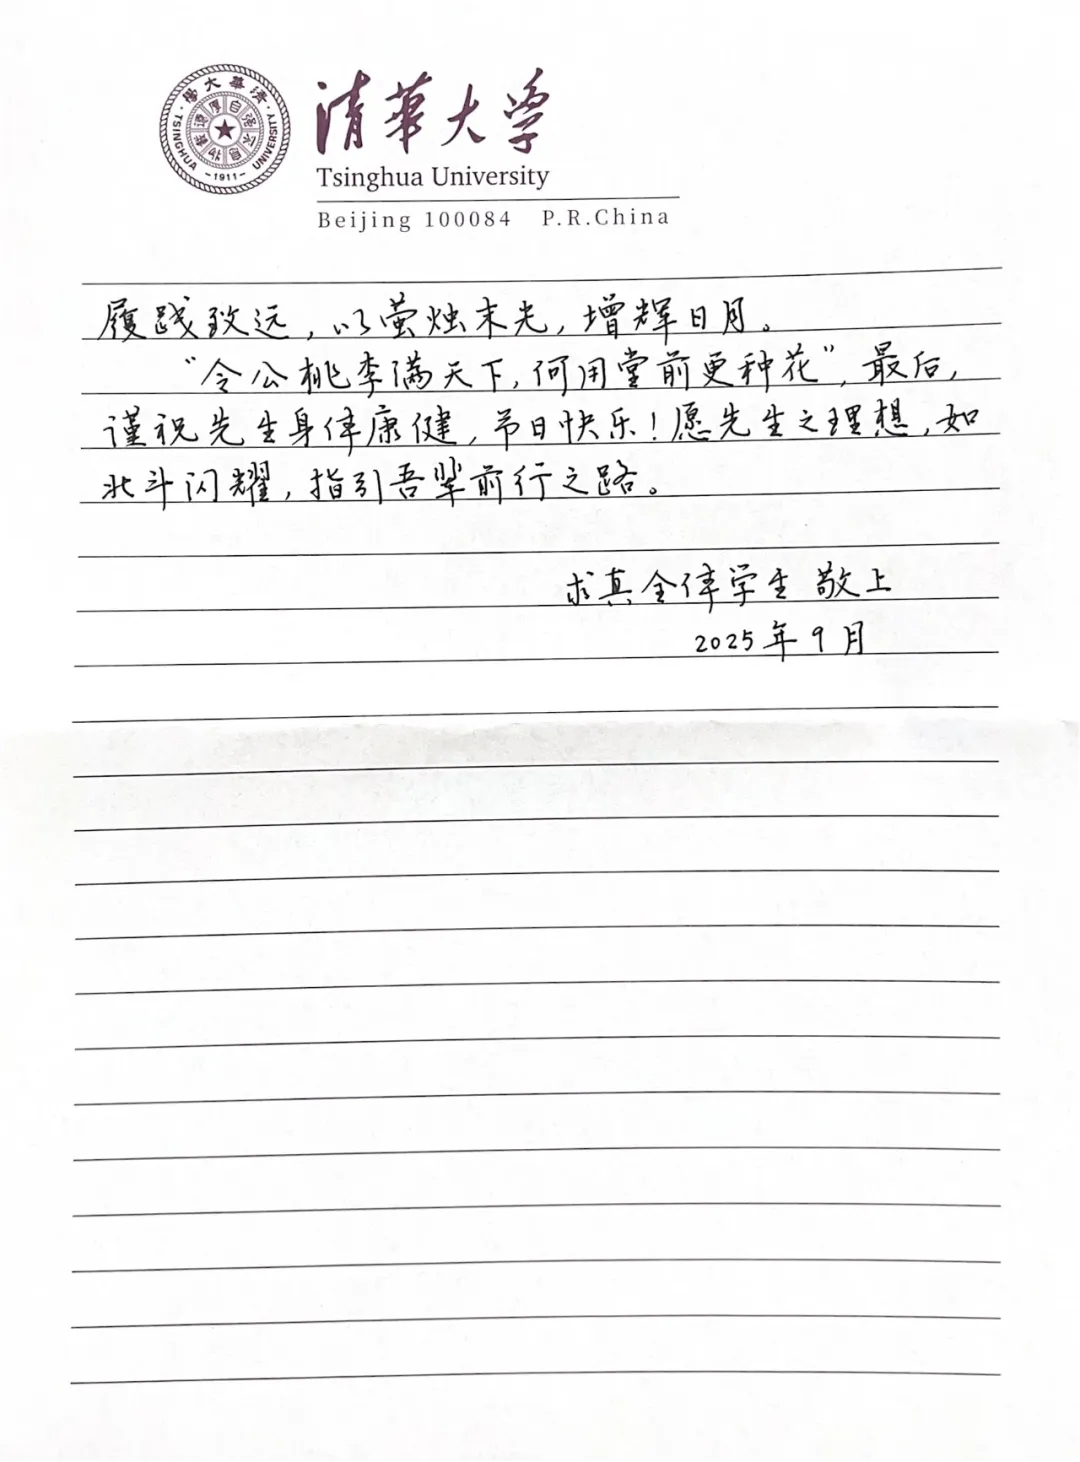 清華大學
TSINGHUA UNIVERSITY
自强不息
厚德載物
-1911-
清華大学
Tsinghua University
Beijing 100084 P.R.China
履践致远，以萤烛末光，增辉日月。
“令公桃李满天下，何用堂前更种花”，最后，
谨祝先生身体康健，节日快乐！愿先生之理想，如
北斗闪耀，指引吾辈前行之路。
求真全体学生 敬上
2025年9月